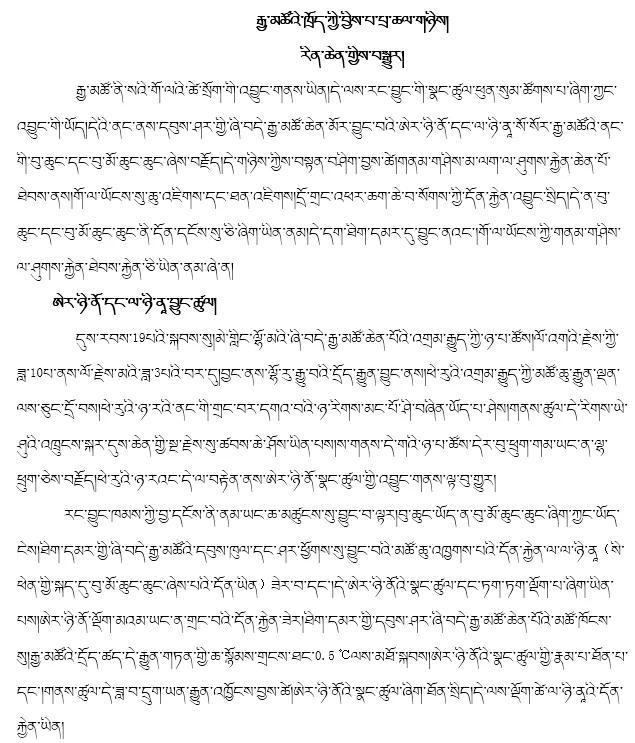 རྒྱ་མཚོའི་ཁྲོད་ཀྱི་བྱིས་པ་ཕྲ་ཆལ་གཉིས།
རིན་ཆེན་གྱིས་བསྒྱུར།
རྒྱ་མཚོ་ནི་སའི་གོ་ལའི་ཚེ་སྲོག་གི་འབྱུང་གནས་ཡིན།དེ་ལས་རང་བྱུང་གི་སྣང་ཚུལ་ཕུན་སུམ་ཚོགས་པ་ཞིག་ཀྱང་
འབྱུང་གི་ཡོད།དེའི་ནང་ནས་དབུས་ཤར་གྱི་ཞི་བདེ་རྒྱ་མཚོ་ཆེན་མོར་བྱུང་བའི་ཨེར་ཉི་ནོ་དང་ལ་ཉི་ནཱ་སོ་སོར་རྒྱ་མཚོའི་ནང་
གི་བུ་ཆུང་དང་བུ་མོ་ཆུང་ཆུང་ཞེས་བརྗོད།དེ་གཉིས་ཀྱིས་བསྟན་བཤིག་བྱས་ཚེ།གནམ་གཤིས་མ་ལག་ལ་ཤུགས་རྐྱེན་ཆེན་པོ་
ཐེབས་ནས།གོ་ལ་ཡོངས་སུ་ཆུ་འཇིགས་དང་ཐན་འཇིགས།དྲོ་གྲང་འཕར་ཆག་ཆེ་བ་སོགས་ཀྱི་དོན་རྐྱེན་འབྱུང་སྲིད།དེ་ན་བུ་
ཆུང་དང་བུ་མོ་ཆུང་ཆུང་ནི་དོན་དངོས་སུ་ཅི་ཞིག་ཡིན་ནམ།དེ་དག་ཐིག་དམར་དུ་བྱུང་ནའང་།གོ་ལ་ཡོངས་ཀྱི་གནམ་གཤིས་
ལ་ཤུགས་རྐྱེན་ཐེབས་རྐྱེན་ཅི་ཡིན་ནམ་ཞེ་ན།
ཨེར་ཉི་ནོ་དང་ལ་ཉི་ནཱ་བྱུང་ཚུལ།
དུས་རབས་19པའི་སྐབས་སུ།མེ་གླིང་ལྷོ་མའི་ཞི་བདེ་རྒྱ་མཚོ་ཆེན་པོའི་འགྲམ་རྒྱུད་ཀྱི་ཉ་པ་ཚོས།ལོ་འགའི་རྗེས་ཀྱི་
ཟླ་10པ་ནས་ལོ་རྗེས་མའི་ཟླ་3པའི་བར་དུ།བྱང་ནས་ལྷོ་རུ་རྒྱུ་བའི་དྲོད་རྒྱུན་བྱུང་ནས།པེ་རུའི་འགྲམ་རྒྱུད་ཀྱི་མཚོ་ཆུ་རྒྱུན་ལྡན་
ལས་ཅུང་དྲོ་བས།པེ་རུའི་ཉ་རའི་ནང་གི་གྲང་བར་དགའ་བའི་ཉ་རིགས་མང་པོ་ཤི་བཞིན་ཡོད་པ་ཤེས།གནས་ཚུལ་དེ་རིགས་ཡེ་
ཤུའི་འཁྲུངས་སྐར་དུས་ཆེན་གྱི་སྔ་རྗེས་སུ་ཚབས་ཆེ་ཤོས་ཡིན་པས།ས་གནས་དེ་གའི་ཉ་པ་ཚོས་དེར་བུ་ཕྲུག་གམ་ཡང་ན་ལྷ་
ཕྲུག་ཅེས་བརྗོད།པེ་རུའི་ཉ་རའང་དེ་ལ་བརྟེན་ནས་ཨེར་ཉི་ནོ་སྣང་ཚུལ་གྱི་འབྱུང་གནས་ལྟ་བུ་གྱུར།
རང་བྱུང་ཁམས་ཀྱི་བྱ་དངོས་ནི་ནམ་ཡང་ཆ་མཚུངས་སུ་བྱུང་བ་ལྟར།བུ་ཆུང་ཡོད་ན་བུ་མོ་ཆུང་ཆུང་ཞིག་ཀྱང་ཡོད་
ངེས།ཐིག་དམར་གྱི་ཞི་བདེ་རྒྱ་མཚོའི་དབུས་ཁུལ་དང་ཤར་ཕྱོགས་སུ་བྱུང་བའི་མཚོ་ཆུ་འཁྱགས་པའི་དོན་རྐྱེན་ལ་ལ་ཉི་ནཱ (སི་
ཕེན་གྱི་སྐད་དུ་བུ་མོ་ཆུང་ཆུང་ཞེས་པའི་དོན་ཡིན) ཟེར་བ་དང་།དེ་ཨེར་ཉི་ནོའི་སྣང་ཚུལ་དང་ཏག་ཏག་ལྡོག་པ་ཞིག་ཡིན་
པས།ཨེར་ཉི་ནོ་ལྡོག་མའམ་ཡང་ན་གྲང་བའི་དོན་རྐྱེན་ཟེར།ཐིག་དམར་གྱི་དབུས་ཤར་ཞི་བདེ་རྒྱ་མཚོ་ཆེན་པོའི་མཚོ་ཁོངས་
སུ།རྒྱ་མཚོའི་དྲོད་ཚད་དེ་རྒྱུན་གཏན་གྱི་ཆ་སྙོམས་གྲངས་ཐང་0.5℃ལས་མཐོ་སྐབས།ཨེར་ཉི་ནོའི་སྣང་ཚུལ་གྱི་རྣམ་པ་ཐོན་པ་
དང་།གནས་ཚུལ་དེ་ཟླ་བ་དྲུག་ཡན་རྒྱུན་འཁྱོངས་བྱས་ཚེ།ཨེར་ཉི་ནོའི་སྣང་ཚུལ་ཞིག་ཐོན་སྲིད།དེ་ལས་ལྡོག་ཚེ་ལ་ཉི་ནཱའི་དོན་
རྐྱེན་ཡིན།